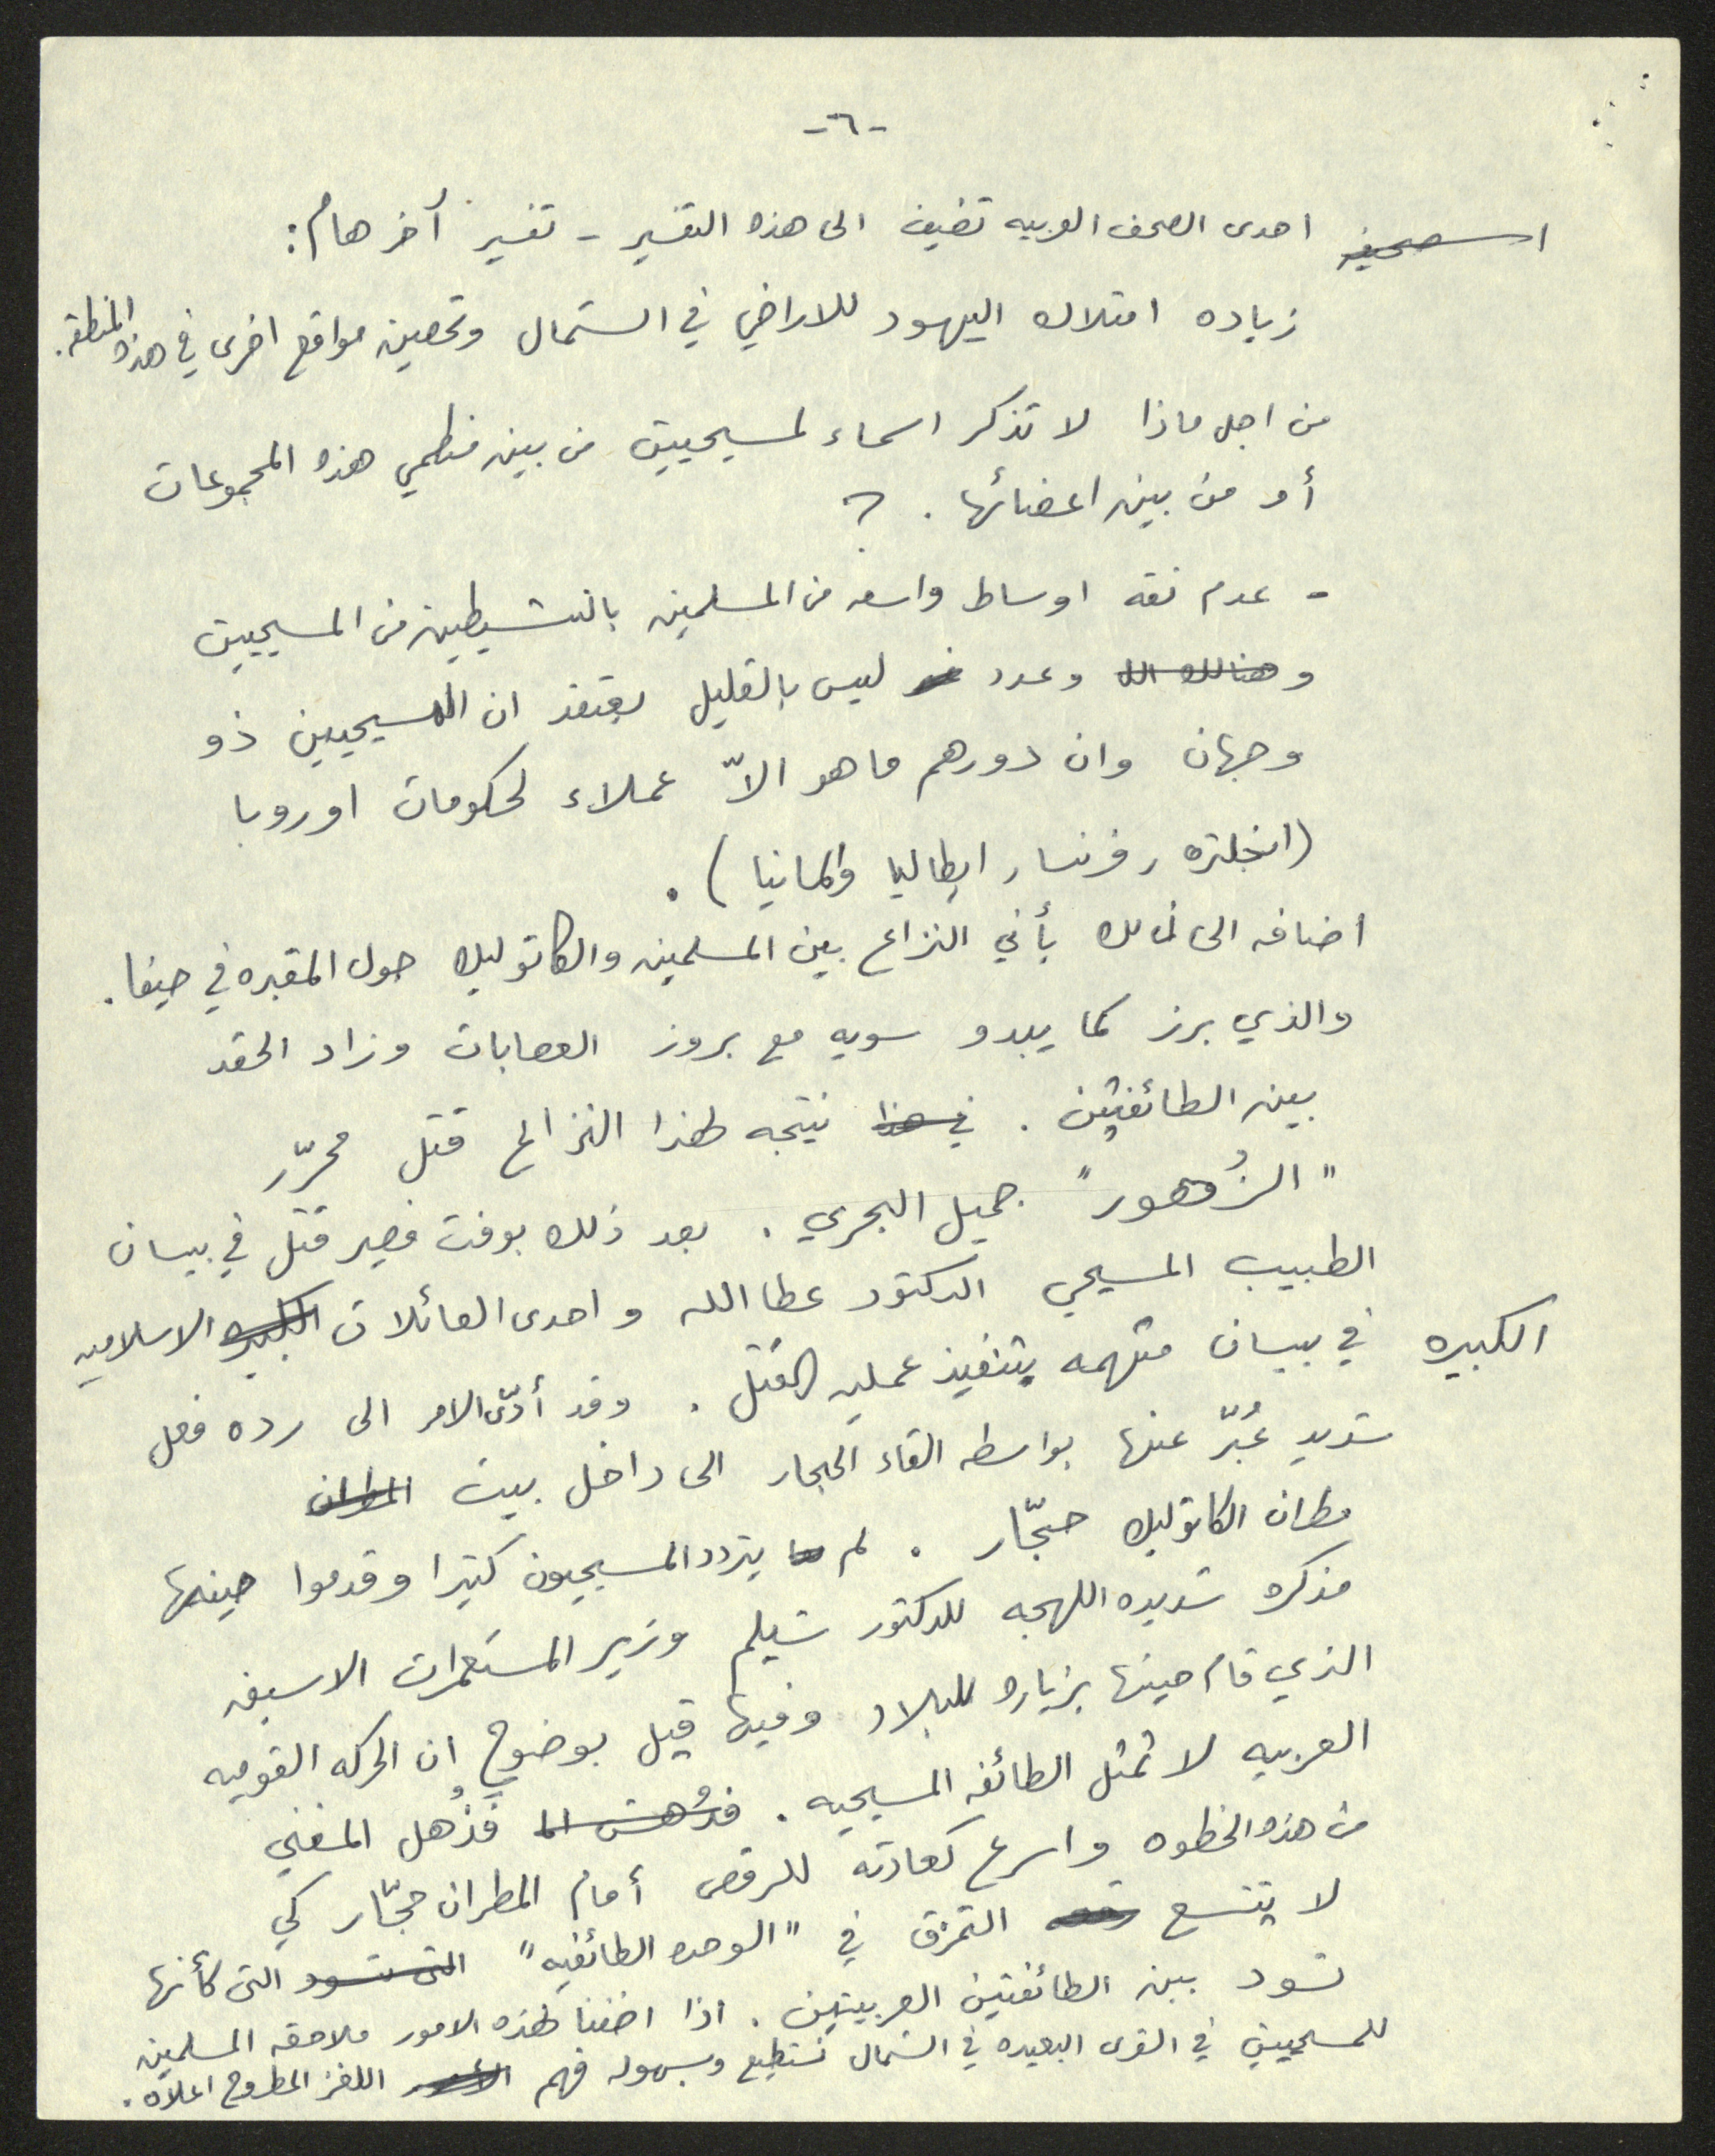 -٦-
احدى الصحف العربيه تضيف الى هذه التفسير - تفسير آخر هام:
زياده امتلاك اليهود للاراضي في الشمال وتحصين مواقع اخرى في هذه المنطقه.
من اجل ماذا لا تذكر اسماء لمسيحيين من بين منظمي هذه المجموعات
أو من بين اعضائها. ؟
- عدم ثقه اوساط واسعه من المسلمين بالنشيطين من المسيحيين
و وعدد ليس بالقليل يعتقد ان المسيحيين ذو
وجهان وان دورهم ما هو الاّ عملاء لحكومات اوروبا
(انجلتره, فرنسا, ايطاليا والمانيا).
اضافه الى ذلك يأتي النزاع بين المسلمين والكاتوليك حول المقبره في حيفا.
والذي برز كما يبدو سويه مع بروز العصابات وزاد الحقد
بين الطائفتين. في هذا نتيجه لهذا النزاع قتل محرّر
"الزُهور" جميل البحري. بعد ذلك بوقت قصير قتل في بيسان
الطبيب المسيحي الدكتور عطا الله واحدى العائلات الكبيره الاسلاميه
الكبيره في بيسان متهمه بتنفيذ عمليه القتل. وقد أدّى الامر الى رده فعل
شديد عُبّر عنها بواسطه القاء الحجار الى داخل بيت المطران
مطران الكاتوليك حجّار. لم يتردد المسيحيون كثيرا وقدموا حينها
مذكره شديده اللهجه للدكتور شيلم وزير المستعمرات الاسبق
الذي قام حينها بزياره للبلاد وفيها قيل بوضوح ان الحركه القوميه
العربيه لا تمثل الطائفه المسيحيه. فذُهل المفتي
من هذه الخطوه واسرع كعادته للرقص أمام المطران حجّار كي
لا يتسع التمزق في "الوحده الطائفيه" التي تسود التي كأنها
تسود بين الطائفتين العربيتين. اذا اضفنا لهذه الامور ملاحقه المسلمين
للمسيحيين في القرى البعيده في الشمال نستطيع وبسهوله فهم اللغز المطروح اعلاه.